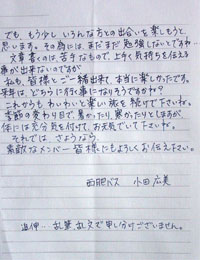 でも、もう少しいろんな方との出合いを楽しもうと
思います。その為には、まだまだ勉強しないとですね…
文章書くのは、苦手なもので、上手く気持ちを伝える
事が出来ないのですが
私も、皆様とご一緒出来て、本当に楽しかったです。
来年は、どちらに行く事になりそうですか?
これからも、わいわいと楽しい旅を続けて下さいね。
季節の変わり目で、暑かったり、寒かったりとしますが、
体には充分気を付けて、お元気でいて下さいね。
それでは さようなら
素敵なメンバー皆様にもよろしくお伝え下さい。
西肥バス 小田 広美
追伸… 乱筆、乱文で申し分けございません。